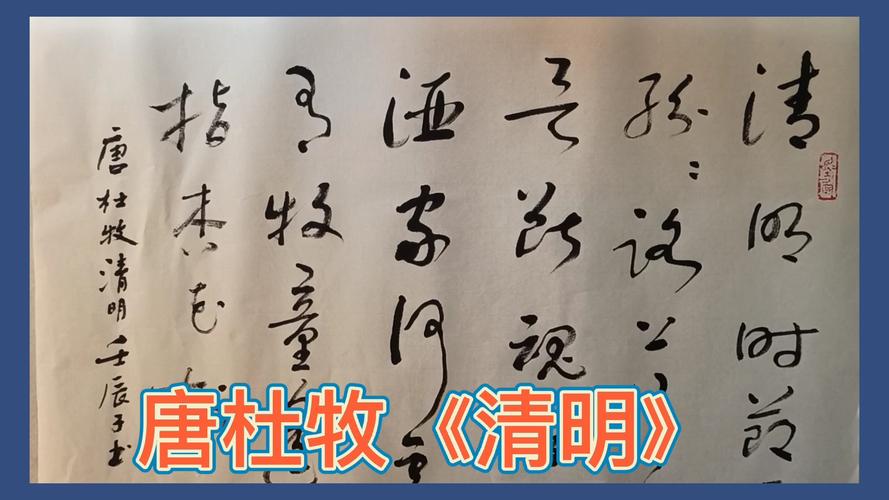 清明时节
纷〻路上
断魂
酒家何处
有牧童遥
指杏花
唐杜牧清明壬辰子书
唐杜牧《清明》